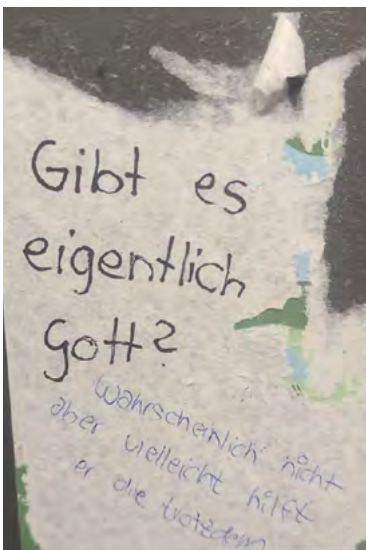 Gibt es
eigentlich
Gott?
Wahrscheinlich nicht
aber vielleicht hilft
er die trotzdem